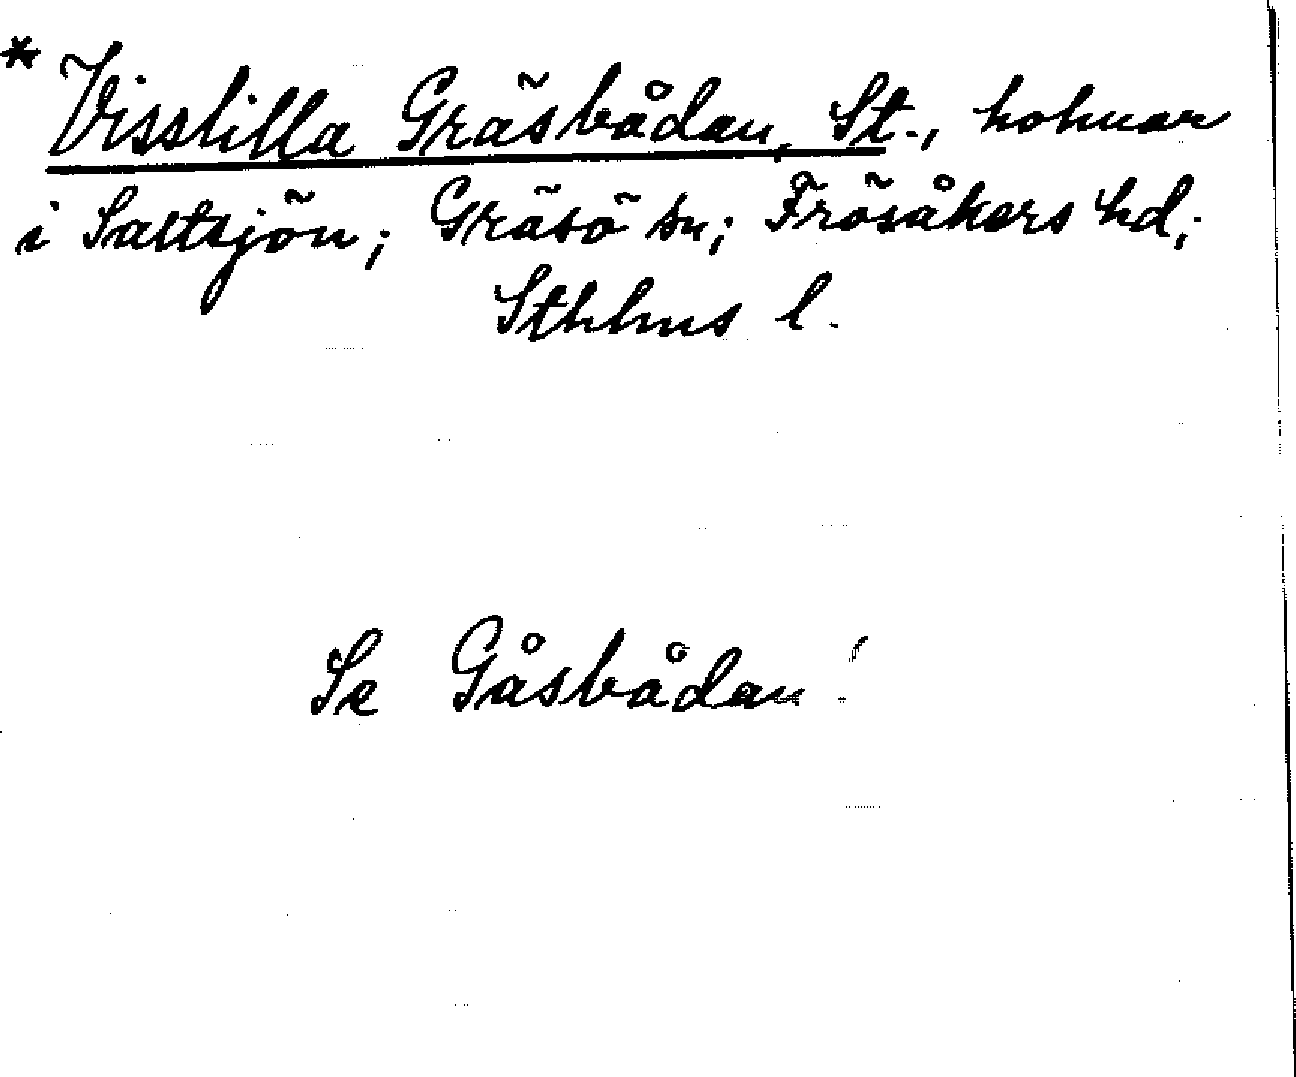 * Visslilla Gräsbådan, St., holmar
i Saltsjön; Gräsö sn; Frösåkers hd;
Sthlms l.
Se Gåsbådan!